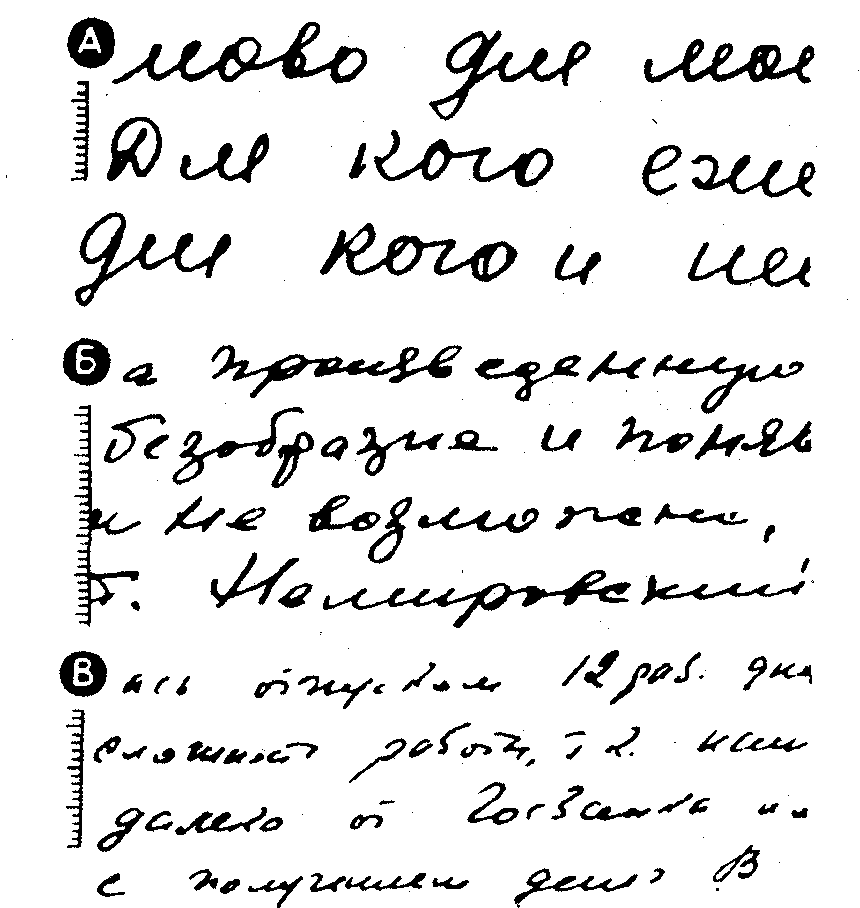 А
ново для мое
Для кого ежи
для кого и ни
Б
а произведенную
безобразие и поняв
и не возможен,
т. Немировский
В
ась отпуском 12 раб. дня
сложност работы, т.к. наш
далеко от Госбанка
с получением денег В